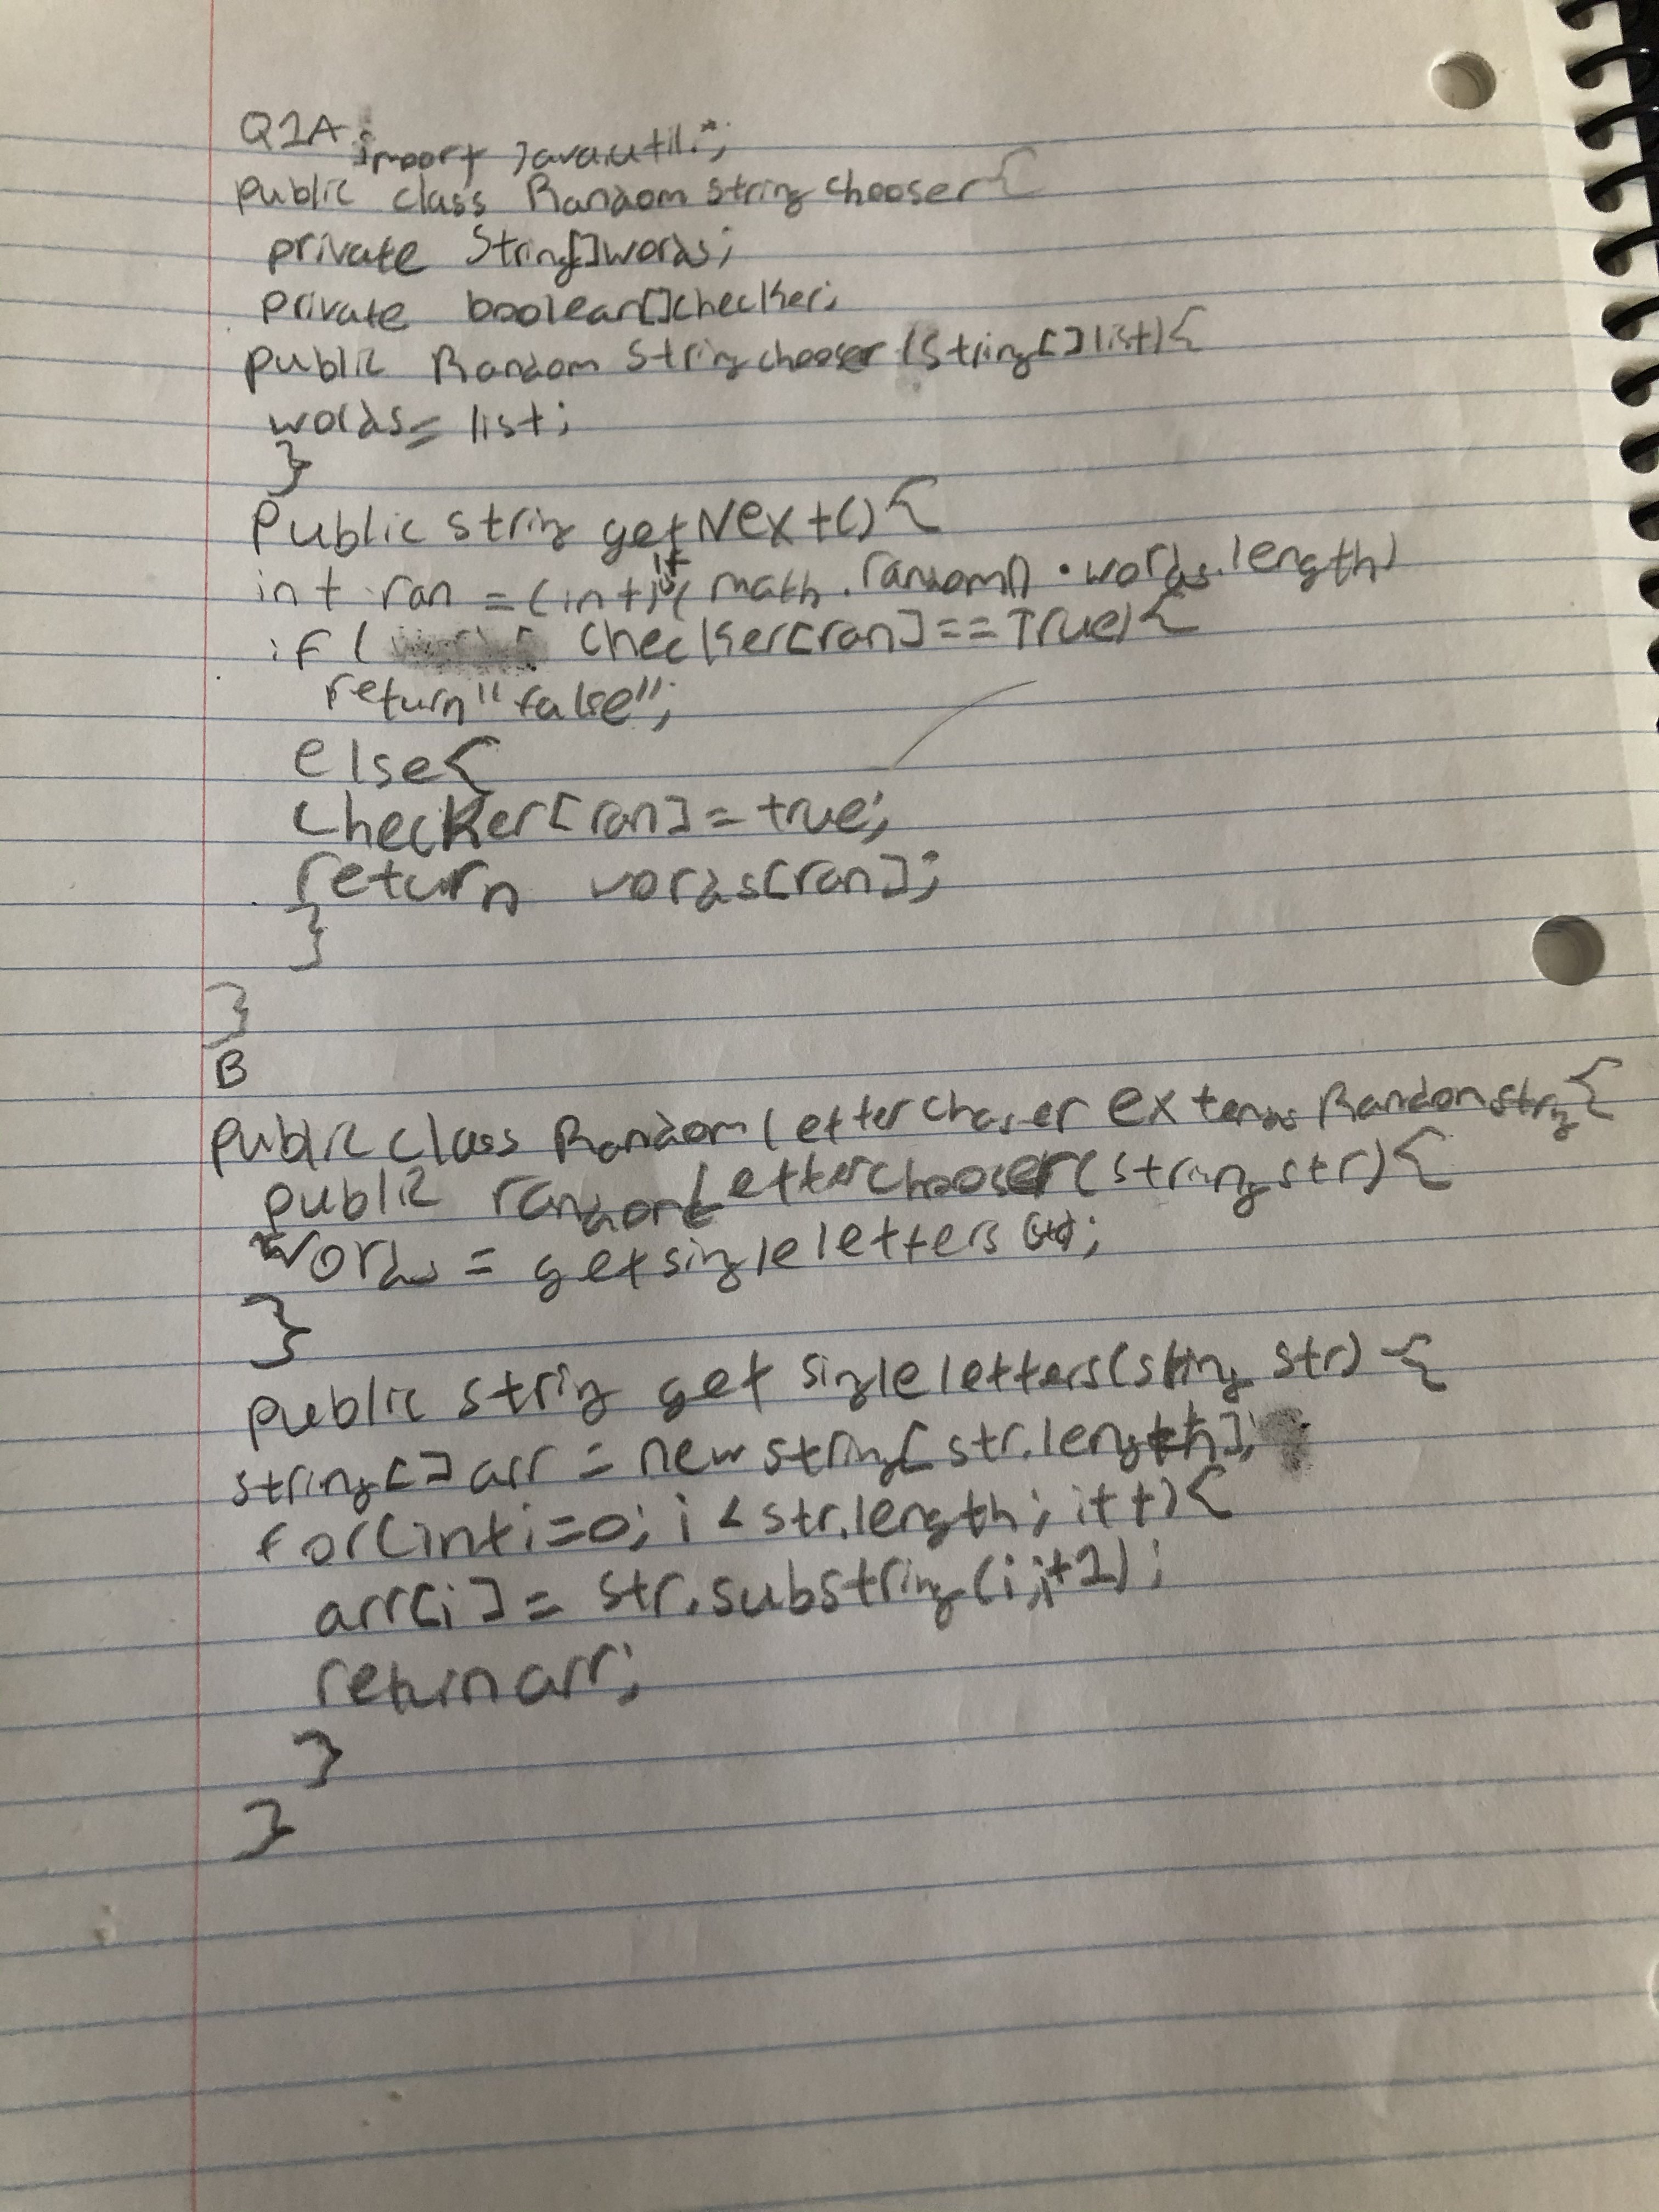 Q1A
import java.util.*;
public class Random String chooser {
private String[] words;
private boolean[] checker;
public Random String chooser (String[] list) {
words = list;
}
Public string getNext() {
int ran = (int) (math.random() • words.length)
if ( checker[ran] == True) {
return "false";
else {
checker[ran] = true;
return words[ran];
}
}
B
public class Random letter chooser extends Random string {
public random Letter chooser (string str) {
words = get single letters (str);
}
public string get single letters (string str) {
string[] arr = new string[str.length];
for (int i=0; i < str.length; i++) {
arr[i] = str.substring(i, i+1);
return arr;
}
}